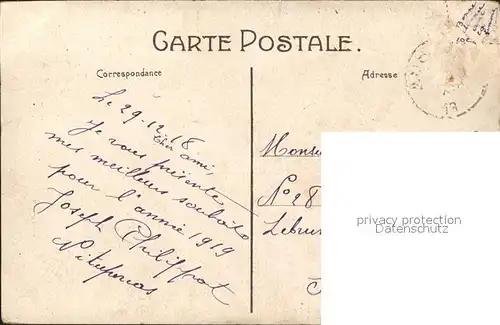 CARTE POSTALE.
Correspondance
Adresse
Le 29-12-18
Cher ami,
Je vous présente
mes meilleurs souhaits
pour l'année 1919
Joseph Philippot
Monsi
N° 28
Lebru
privacy protection
Datenschutz